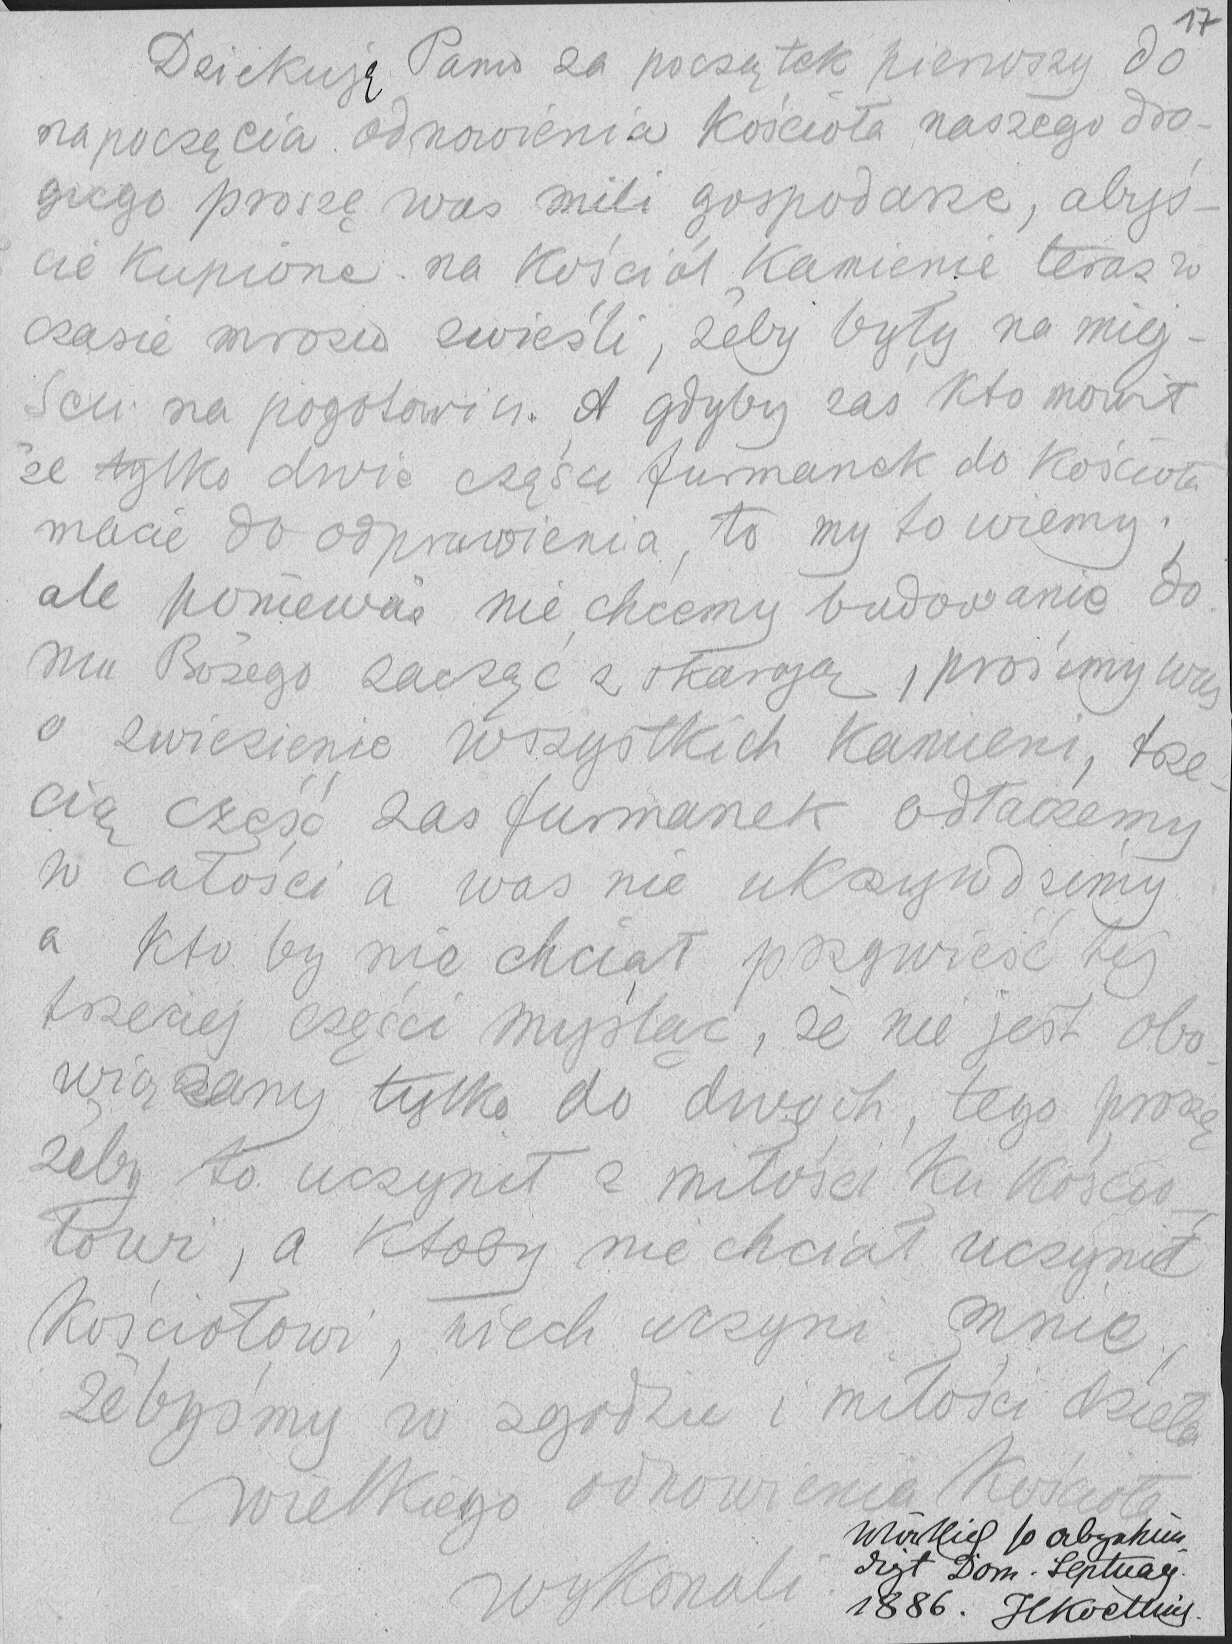 17
Dziekuję Panu za początek pierwszy do
napoczęcia odnowienia Kościoła naszego dro-
giego proszę was mili gospodarze, abyś-
cie Kupione na Kościół Kamienie teraz w
czasie mrozu zwieśli, żeby były na miej-
ścu na pogotowiu. A gdyby zaś Kto mowił
że tylko dwie części furmanek do Kościoła
macie do odprawienia, to my to wiemy,
ale ponieważ nie chcemy budowanie do-
mu Bożego zacząć z skargą, prośimy was
o zwiezienie wszystkich Kamieni, trze-
cią część zas furmanek odtaczemy
w całości a was nie ukrzywdzemy
a Kto by nie chciał przywieść tej
trzeciej części myśląc, że nie jest obo-
wiązany tylko do dwoch, tego proszę
żeby to uczynił z miłości Ku Kościo-
łowi, a Ktoby nie chciał uczynić
Kościołowi, niech uczyni mnie,
żebyśmy w zgodzie i miłości dzieła
wielkiego odnowienia Kościoła
wykonali.
Wörtlich so abgekün-
digt Dom. Septuag.
1886. HKoelling.